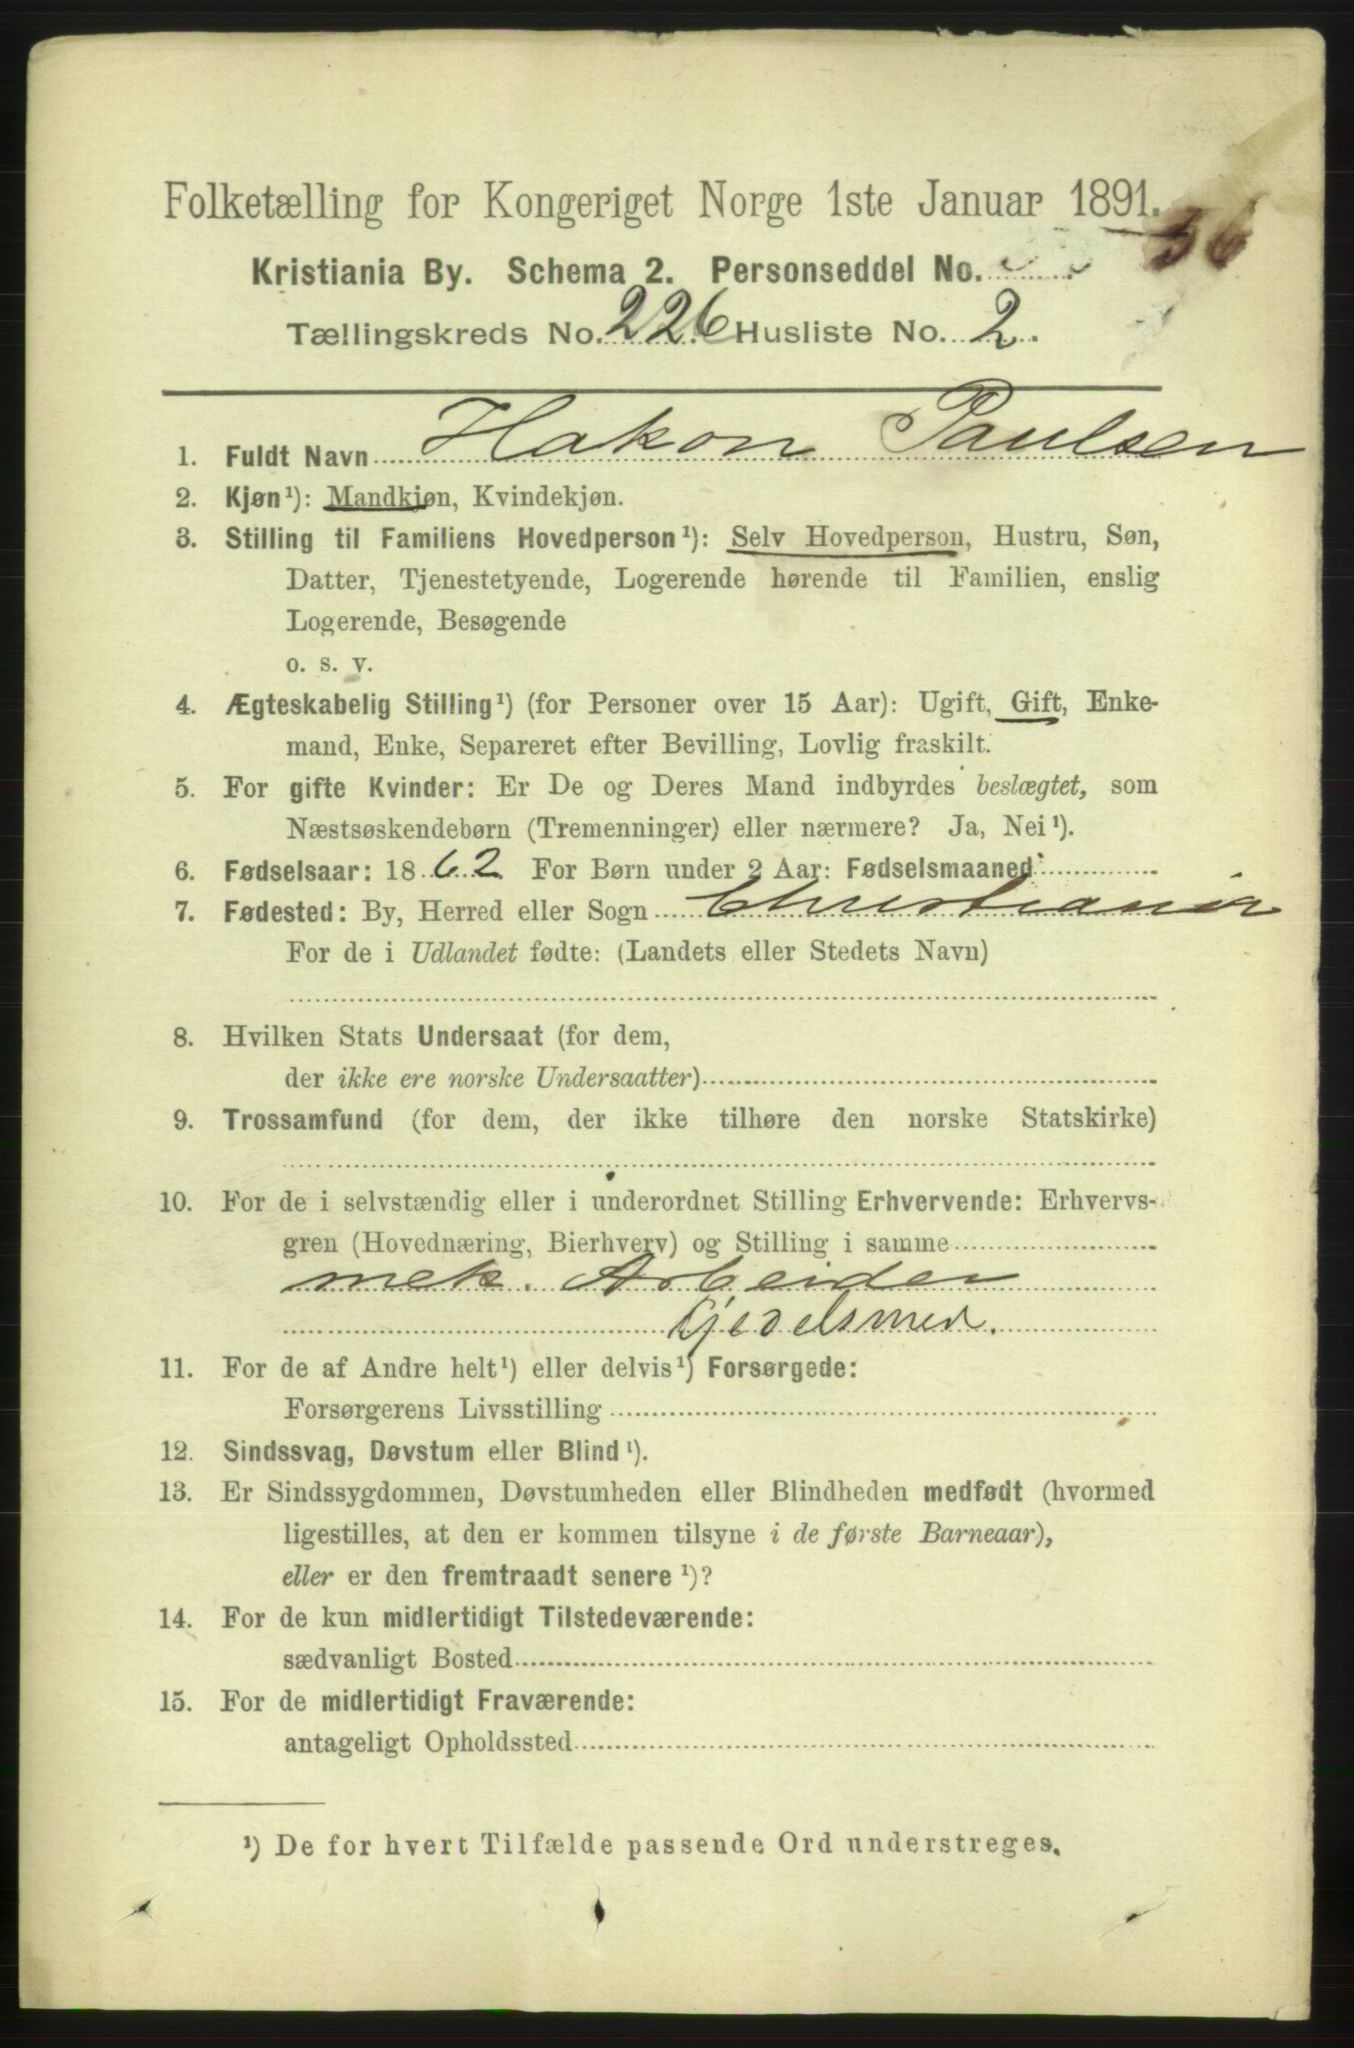 Folketælling for Kongeriget Norge 1ste Januar 1891.
Kristiania By. Schema 2. Personseddel No. 56
Tællingskreds No. 226 Husliste No. 2.
1. Fuldt Navn Hakon Paulsen
2. Kjøn¹): Mandkjøn, Kvindekjøn.
3. Stilling til Familiens Hovedperson¹): Selv Hovedperson, Hustru, Søn,
Datter, Tjenestetyende, Logerende hørende til Familien, enslig
Logerende, Besøgende
o. s. v.
4. Ægteskabelig Stilling¹) (for Personer over 15 Aar): Ugift, Gift, Enke-
mand, Enke, Separeret efter Bevilling, Lovlig fraskilt.
5. For gifte Kvinder: Er De og Deres Mand indbyrdes beslægtet, som
Næstsøskendebørn (Tremenninger) eller nærmere? Ja, Nei¹).
6. Fødselsaar: 1862 For Børn under 2 Aar: Fødselsmaaned
7. Fødested: By, Herred eller Sogn Christiania
For de i Udlandet fødte: (Landets eller Stedets Navn)
8. Hvilken Stats Undersaat (for dem,
der ikke ere norske Undersaatter)
9. Trossamfund (for dem, der ikke tilhøre den norske Statskirke)
10. For de i selvstændig eller i underordnet Stilling Erhvervende: Erhvervs-
gren (Hovednæring, Bierhverv) og Stilling i samme
mek. Arbeider
Kjedelsmed.
11. For de af Andre helt¹) eller delvis¹) Forsørgede:
Forsørgerens Livsstilling
12. Sindssvag, Døvstum eller Blind¹).
13. Er Sindssygdommen, Døvstumheden eller Blindheden medfødt (hvormed
ligestilles, at den er kommen tilsyne i de første Barneaar),
eller er den fremtraadt senere¹)?
14. For de kun midlertidigt Tilstedeværende:
sædvanligt Bosted
15. For de midlertidigt Fraværende:
antageligt Opholdssted
¹) De for hvert Tilfælde passende Ord understreges.